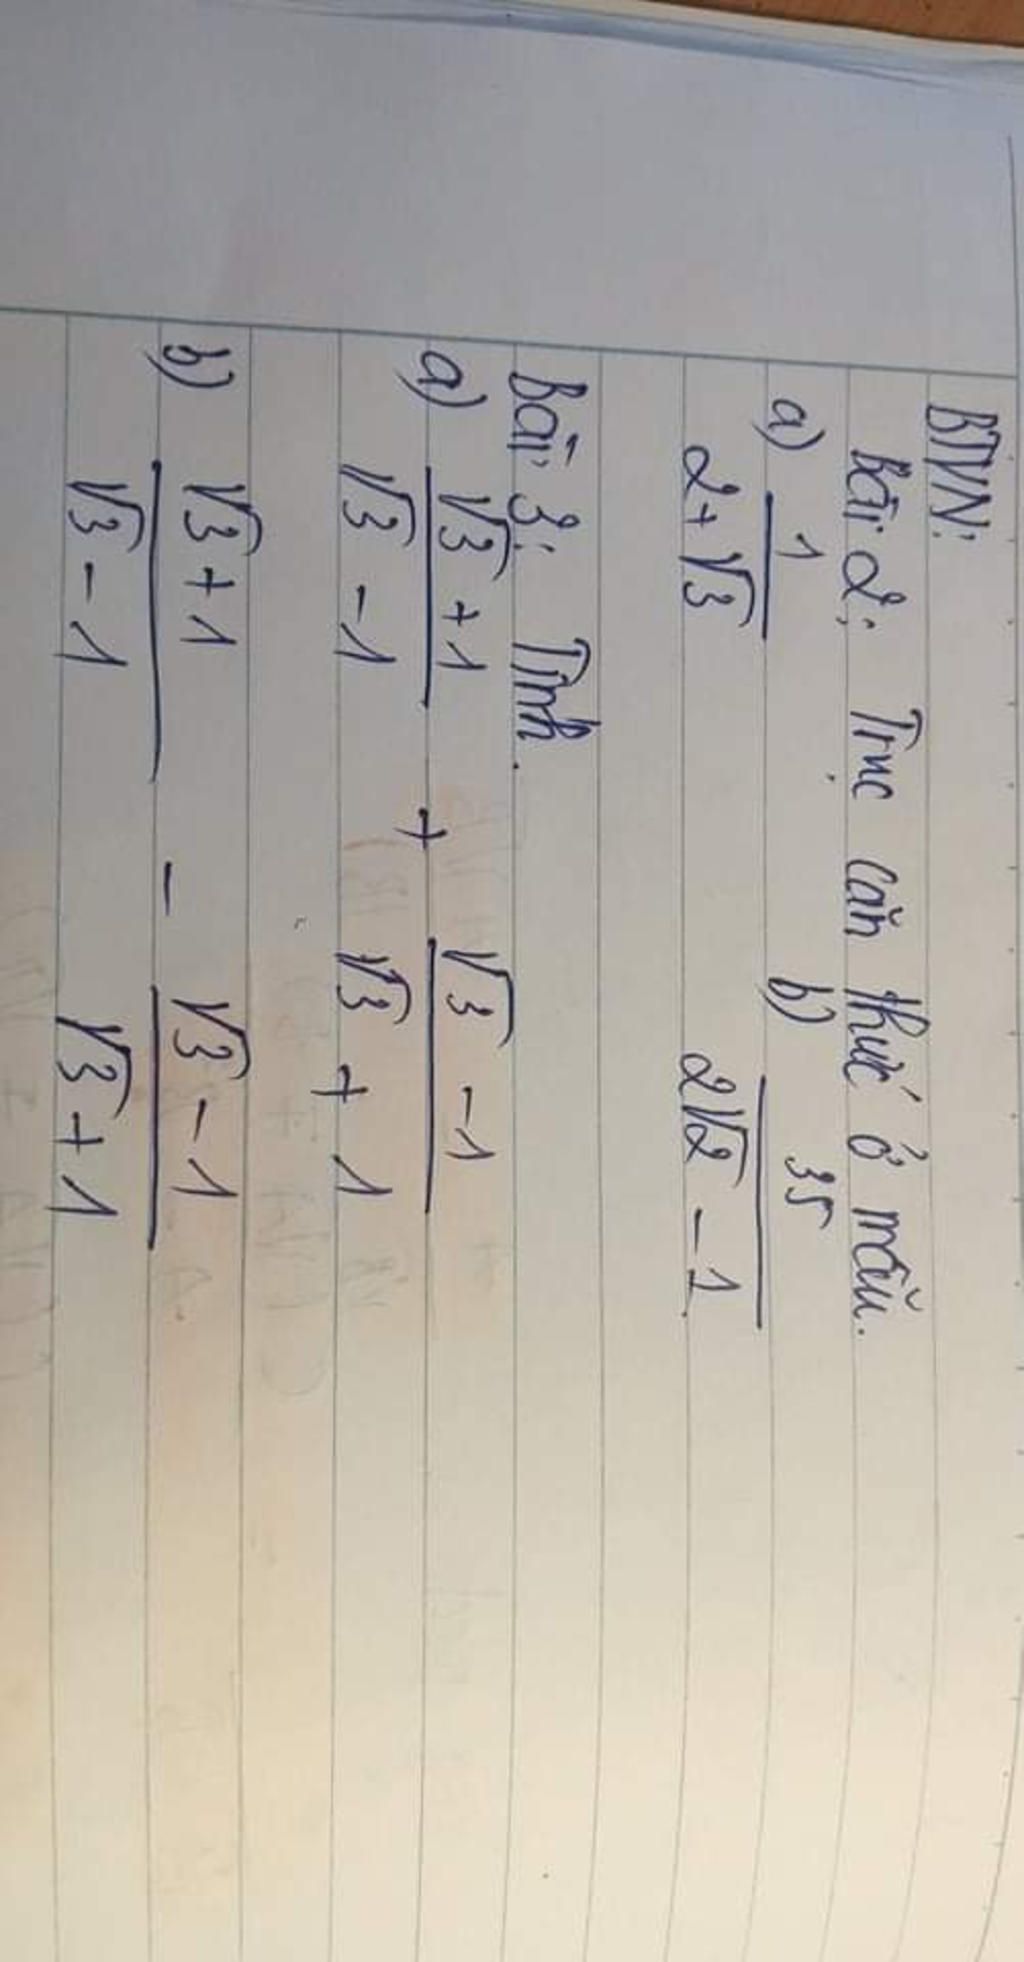 BTVN:
Bài 2: Trục căn thức ở mẫu.
a) 1/(2+√3) b) 35/(2√2 - 1)
Bài 3: Tính.
a) (√3 + 1)/(√3 - 1) + (√3 - 1)/(√3 + 1)
b) (√3 + 1)/(√3 - 1) - (√3 - 1)/(√3 + 1)